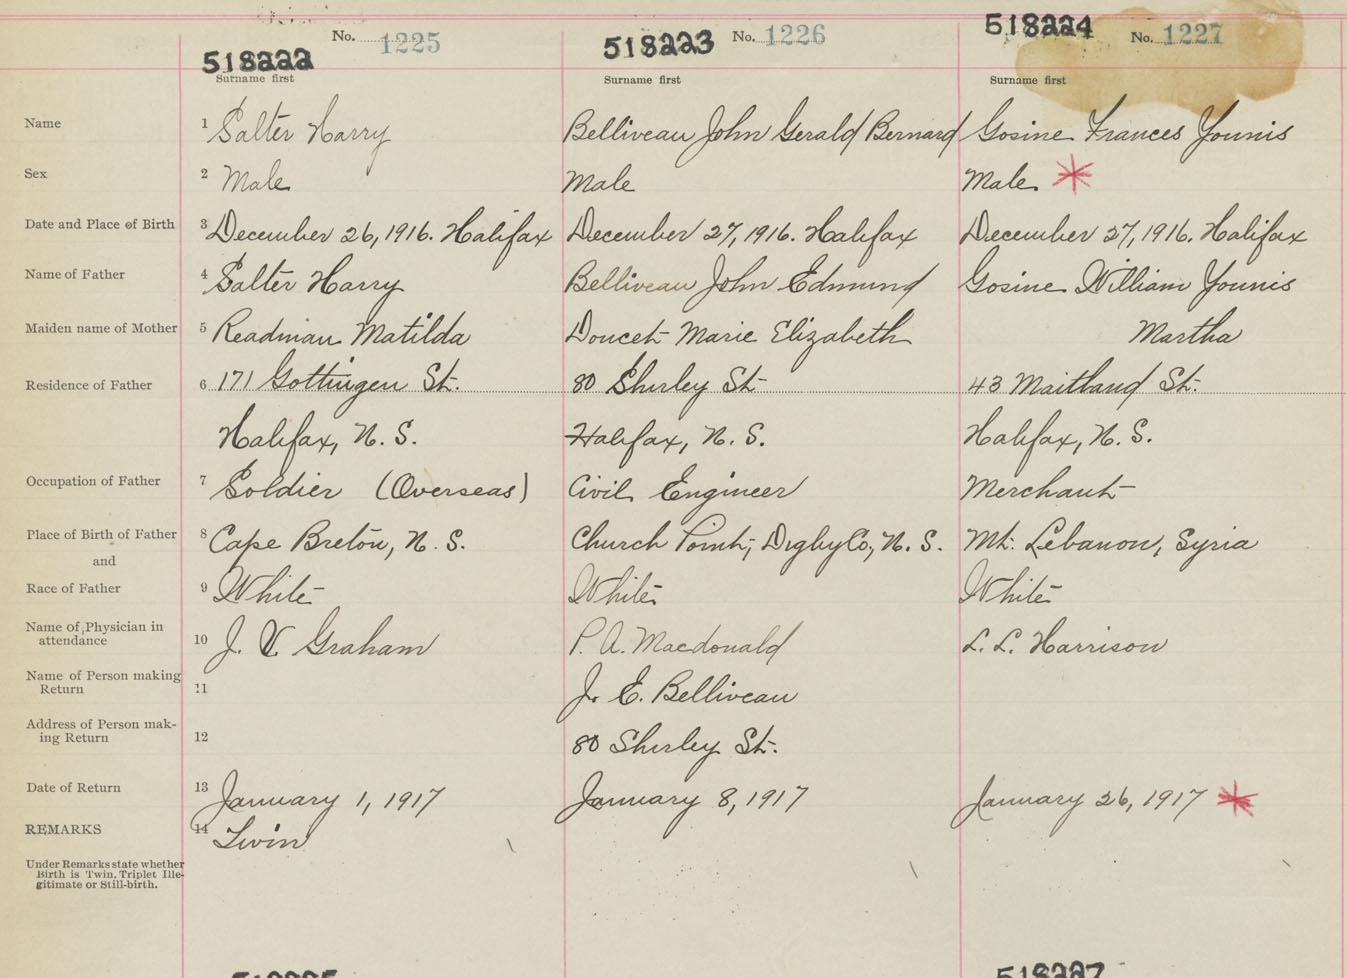 No. 1225
518222
Surname first
518223
No. 1226
Surname first
518224
No. 1227
Surname first
Name 1 Salter Harry Belliveau John Gerald Bernard Gosine Frances Younis
Sex 2 Male Male Male *
Date and Place of Birth 3 December 26, 1916. Halifax December 27, 1916. Halifax December 27, 1916. Halifax
Name of Father 4 Salter Harry Belliveau John Edmund Gosine William Younis
Maiden name of Mother 5 Readman Matilda Doucet Marie Elizabeth Martha
Residence of Father 6 171 Gottingen St. 80 Shirley St. 43 Maitland St.
Halifax, N. S. Halifax, N. S. Halifax, N. S.
Occupation of Father 7 Soldier (Overseas) Civil Engineer Merchant
Place of Birth of Father 8 Cape Breton, N. S. Church Point, Digby Co, N. S. Mt. Lebanon, Syria
and
Race of Father 9 White White White
Name of Physician in
attendance 10 J. V. Graham P. A. Macdonald L. L. Harrison
Name of Person making
Return 11 J. E. Belliveau
Address of Person mak-
ing Return 12 80 Shirley St.
Date of Return 13 January 1, 1917 January 8, 1917 January 26, 1917 *
REMARKS 14 Twin
Under Remarks state whether
Birth is Twin, Triplet Ille-
gitimate or Still-birth.